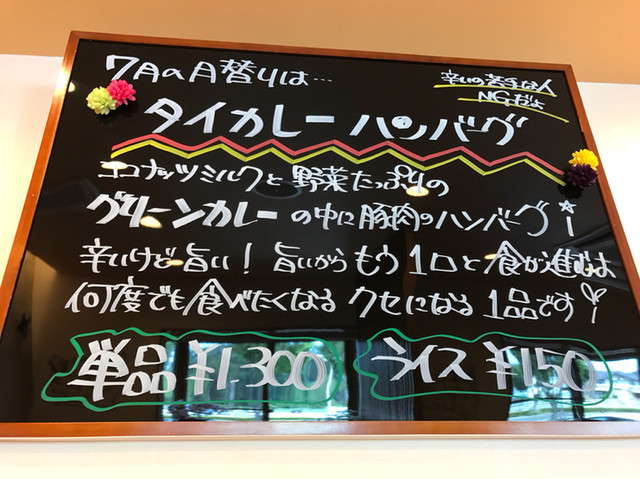 7月の月替りは…
辛いの苦手な人
NGだよ
タイカレーハンバーグ
ココナッツミルクと野菜たっぷりの
グリーンカレーの中に豚肉のハンバーグ!
辛いけど旨い!旨いからもう1口と食が進むよ
何度でも食べたくなるクセになる1品です!
単品¥1.300
ライス¥150